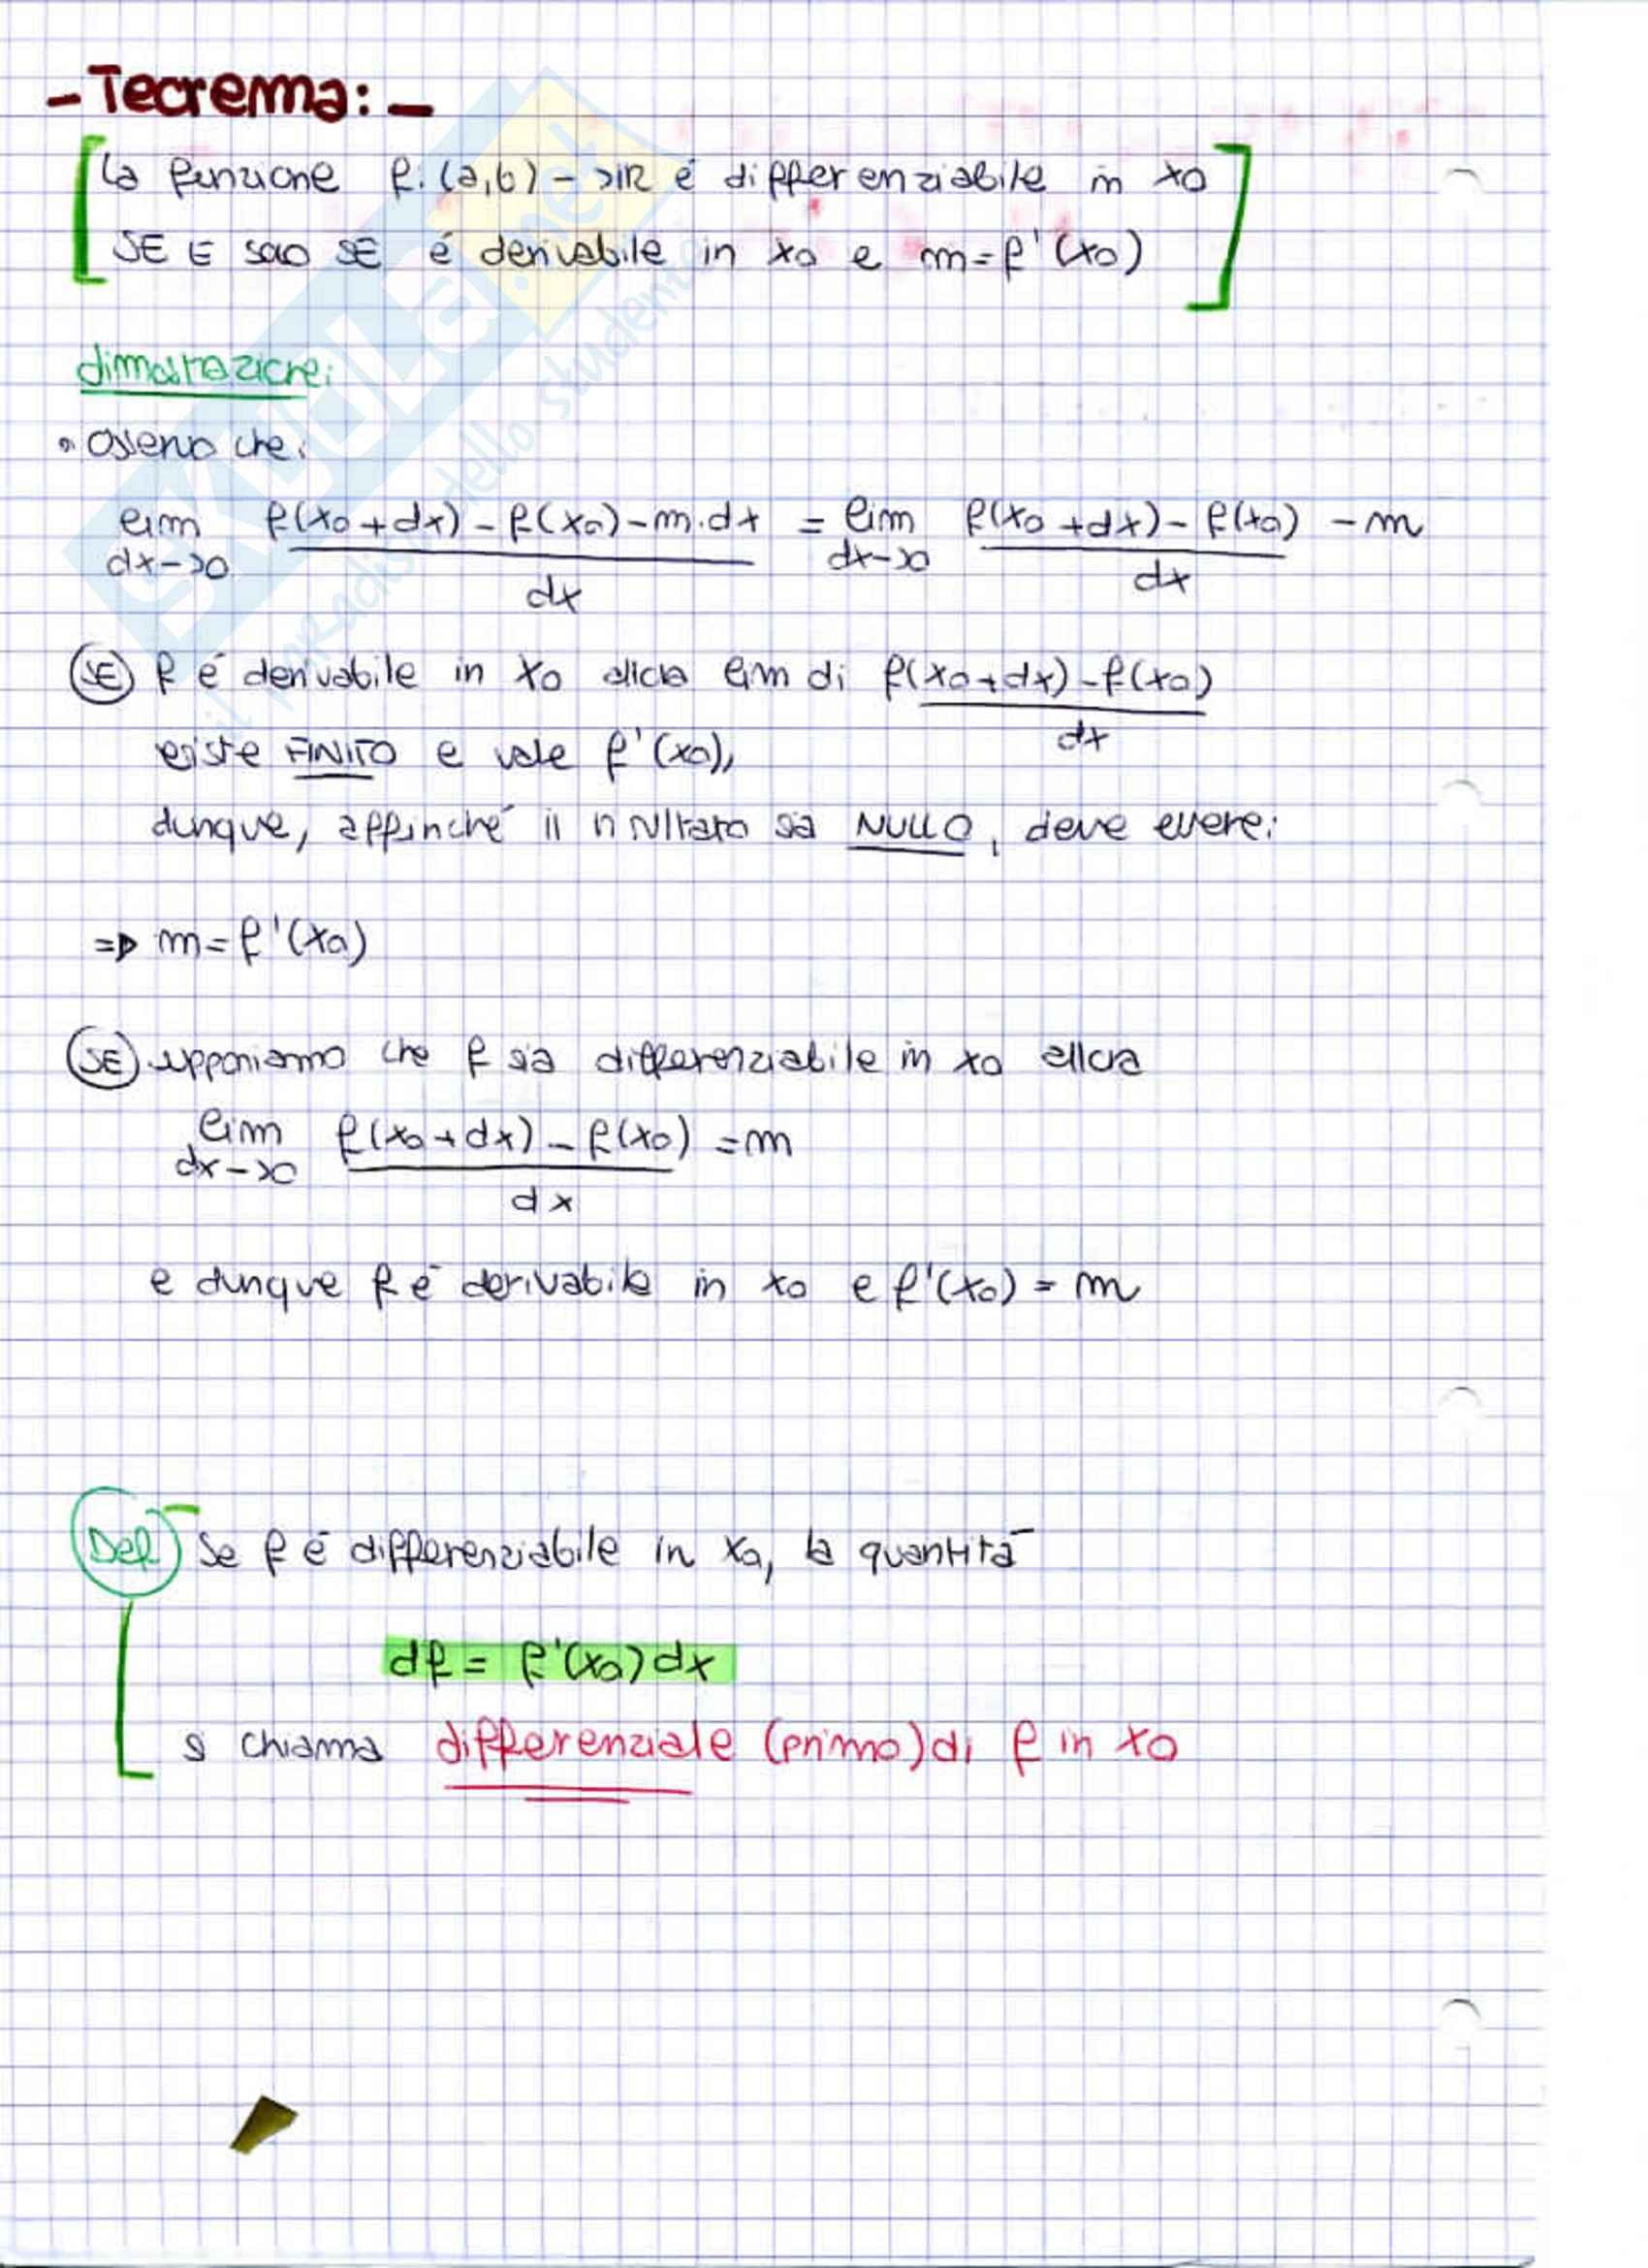 - Teorema: -
La funzione f: (a,b) -> IR é differenziabile in x0
SE E SOLO SE é derivabile in x0 e m = f'(x0)
dimostrazione:
• Osservo che:
lim dx->0 f(x0+dx) - f(x0) - m·dx / dx = lim dx->0 f(x0+dx) - f(x0) / dx - m
SE f é derivabile in x0 allora lim di f(x0+dx) - f(x0) / dx
esiste FINITO e vale f'(x0),
dunque, affinché il risultato sia NULLO, deve essere:
=> m = f'(x0)
SE supponiamo che f sia differenziabile in x0 allora
lim dx->0 f(x0+dx) - f(x0) / dx = m
e dunque f é derivabile in x0 e f'(x0) = m
Def Se f é differenziabile in x0, la quantitá
df = f'(x0) dx
si chiama differenziale (primo) di f in x0
SKUOLA.net
il paradiso dello studente